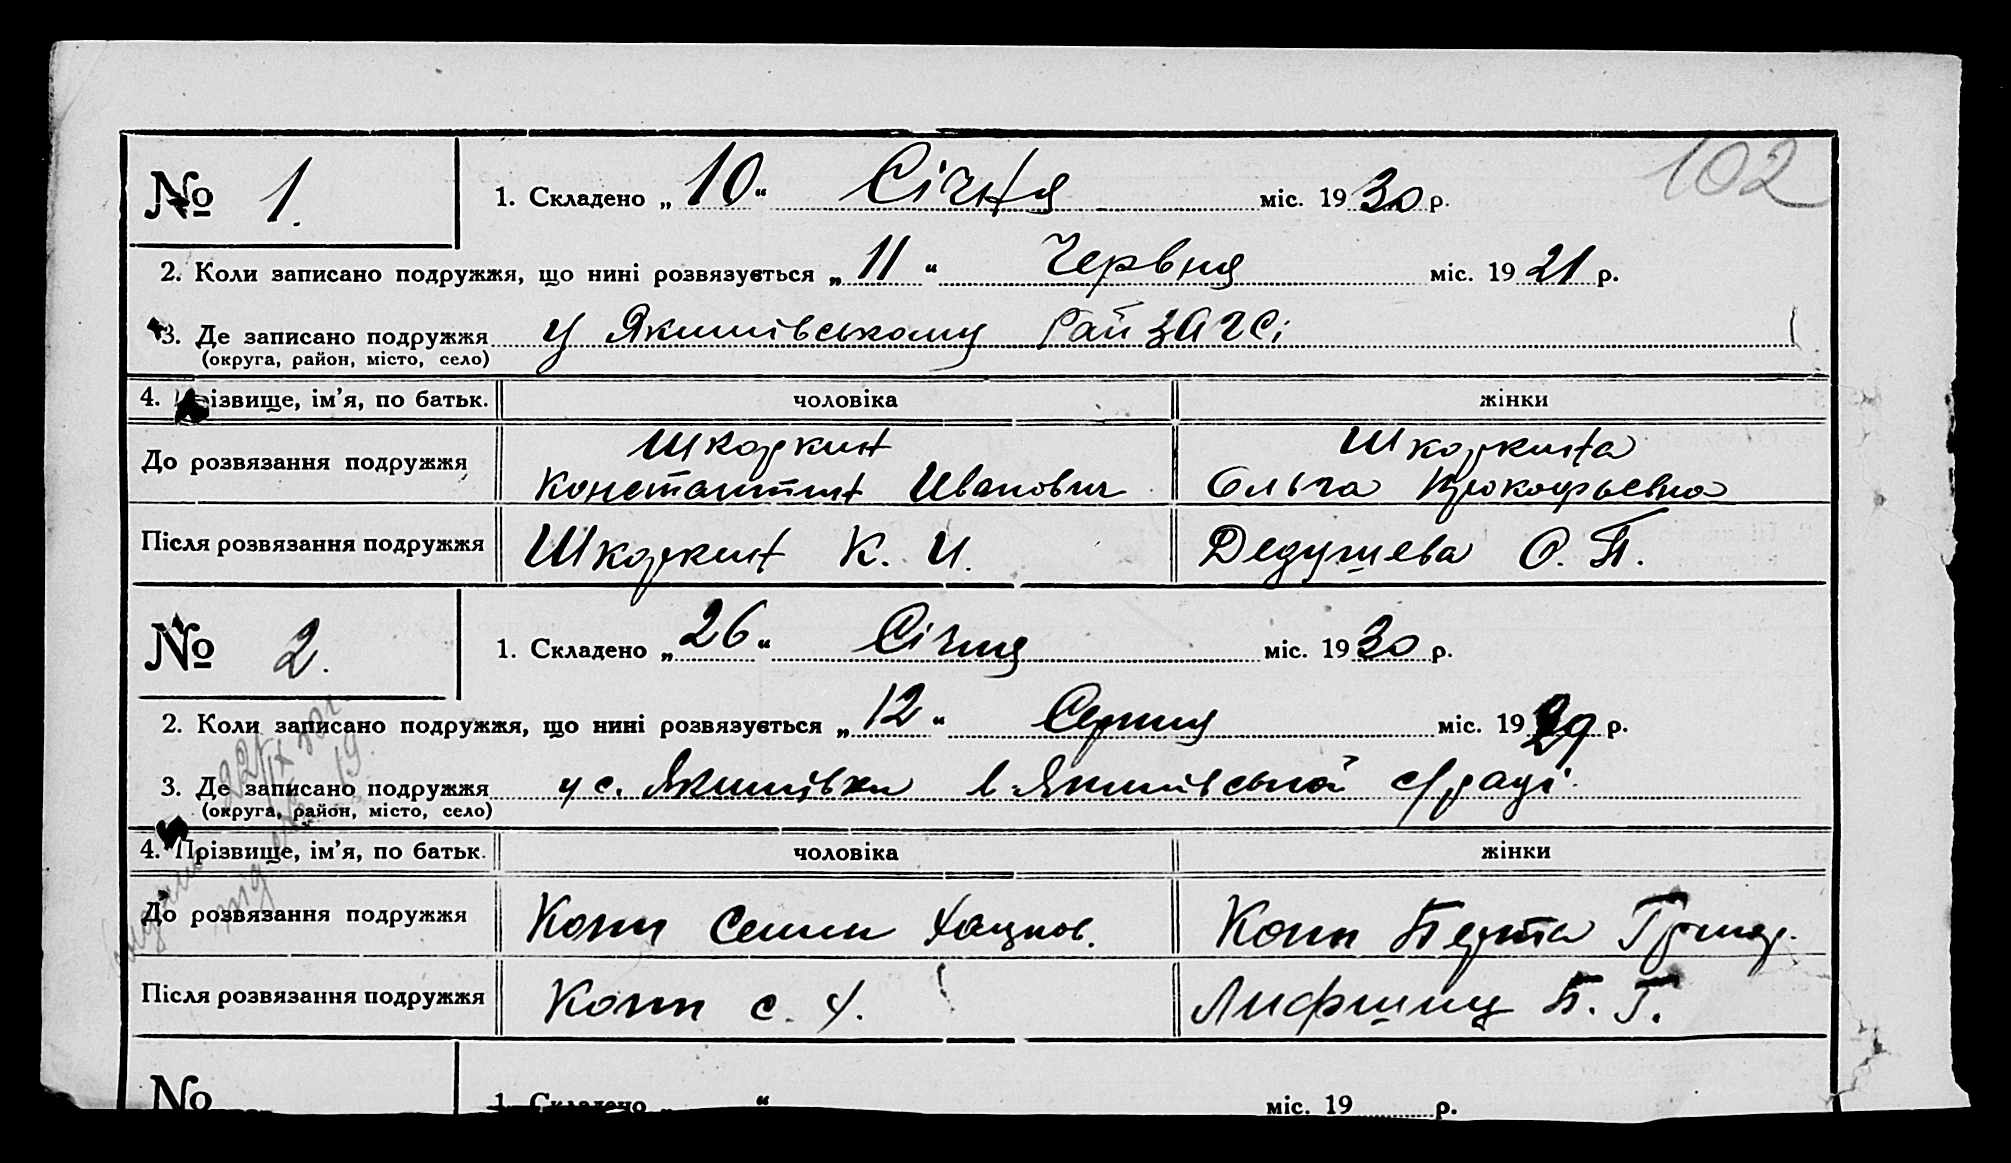 102
№ 1.
1. Складено „10“ Січня міс. 1930 р.
2. Коли записано подружжя, що нині розвязується „11“ Червня міс. 1921 р.
3. Де записано подружжя у Якимівському Рай ЗАГСі
(округа, район, місто, село)
4. Прізвище, ім’я, по батьк. чоловіка жінки
До розвязання подружжя Шкоркин Шкоркина
Константин Иванович Ольга Прокофьевна
Після розвязання подружжя Шкоркин К. И. Дедушева О. П.
№ 2.
1. Складено „26“ Січня міс. 1930 р.
2. Коли записано подружжя, що нині розвязується „12“ Серпня міс. 1929 р.
3. Де записано подружжя у с. Якимівки в Якимівській с/раді
(округа, район, місто, село)
4. Прізвище, ім’я, по батьк. чоловіка жінки
До розвязання подружжя Копп Семен Копп Берта
Після розвязання подружжя Копп С. Лифшиц Б. Г.
№
1. Складено „ “ міс. 19 р.